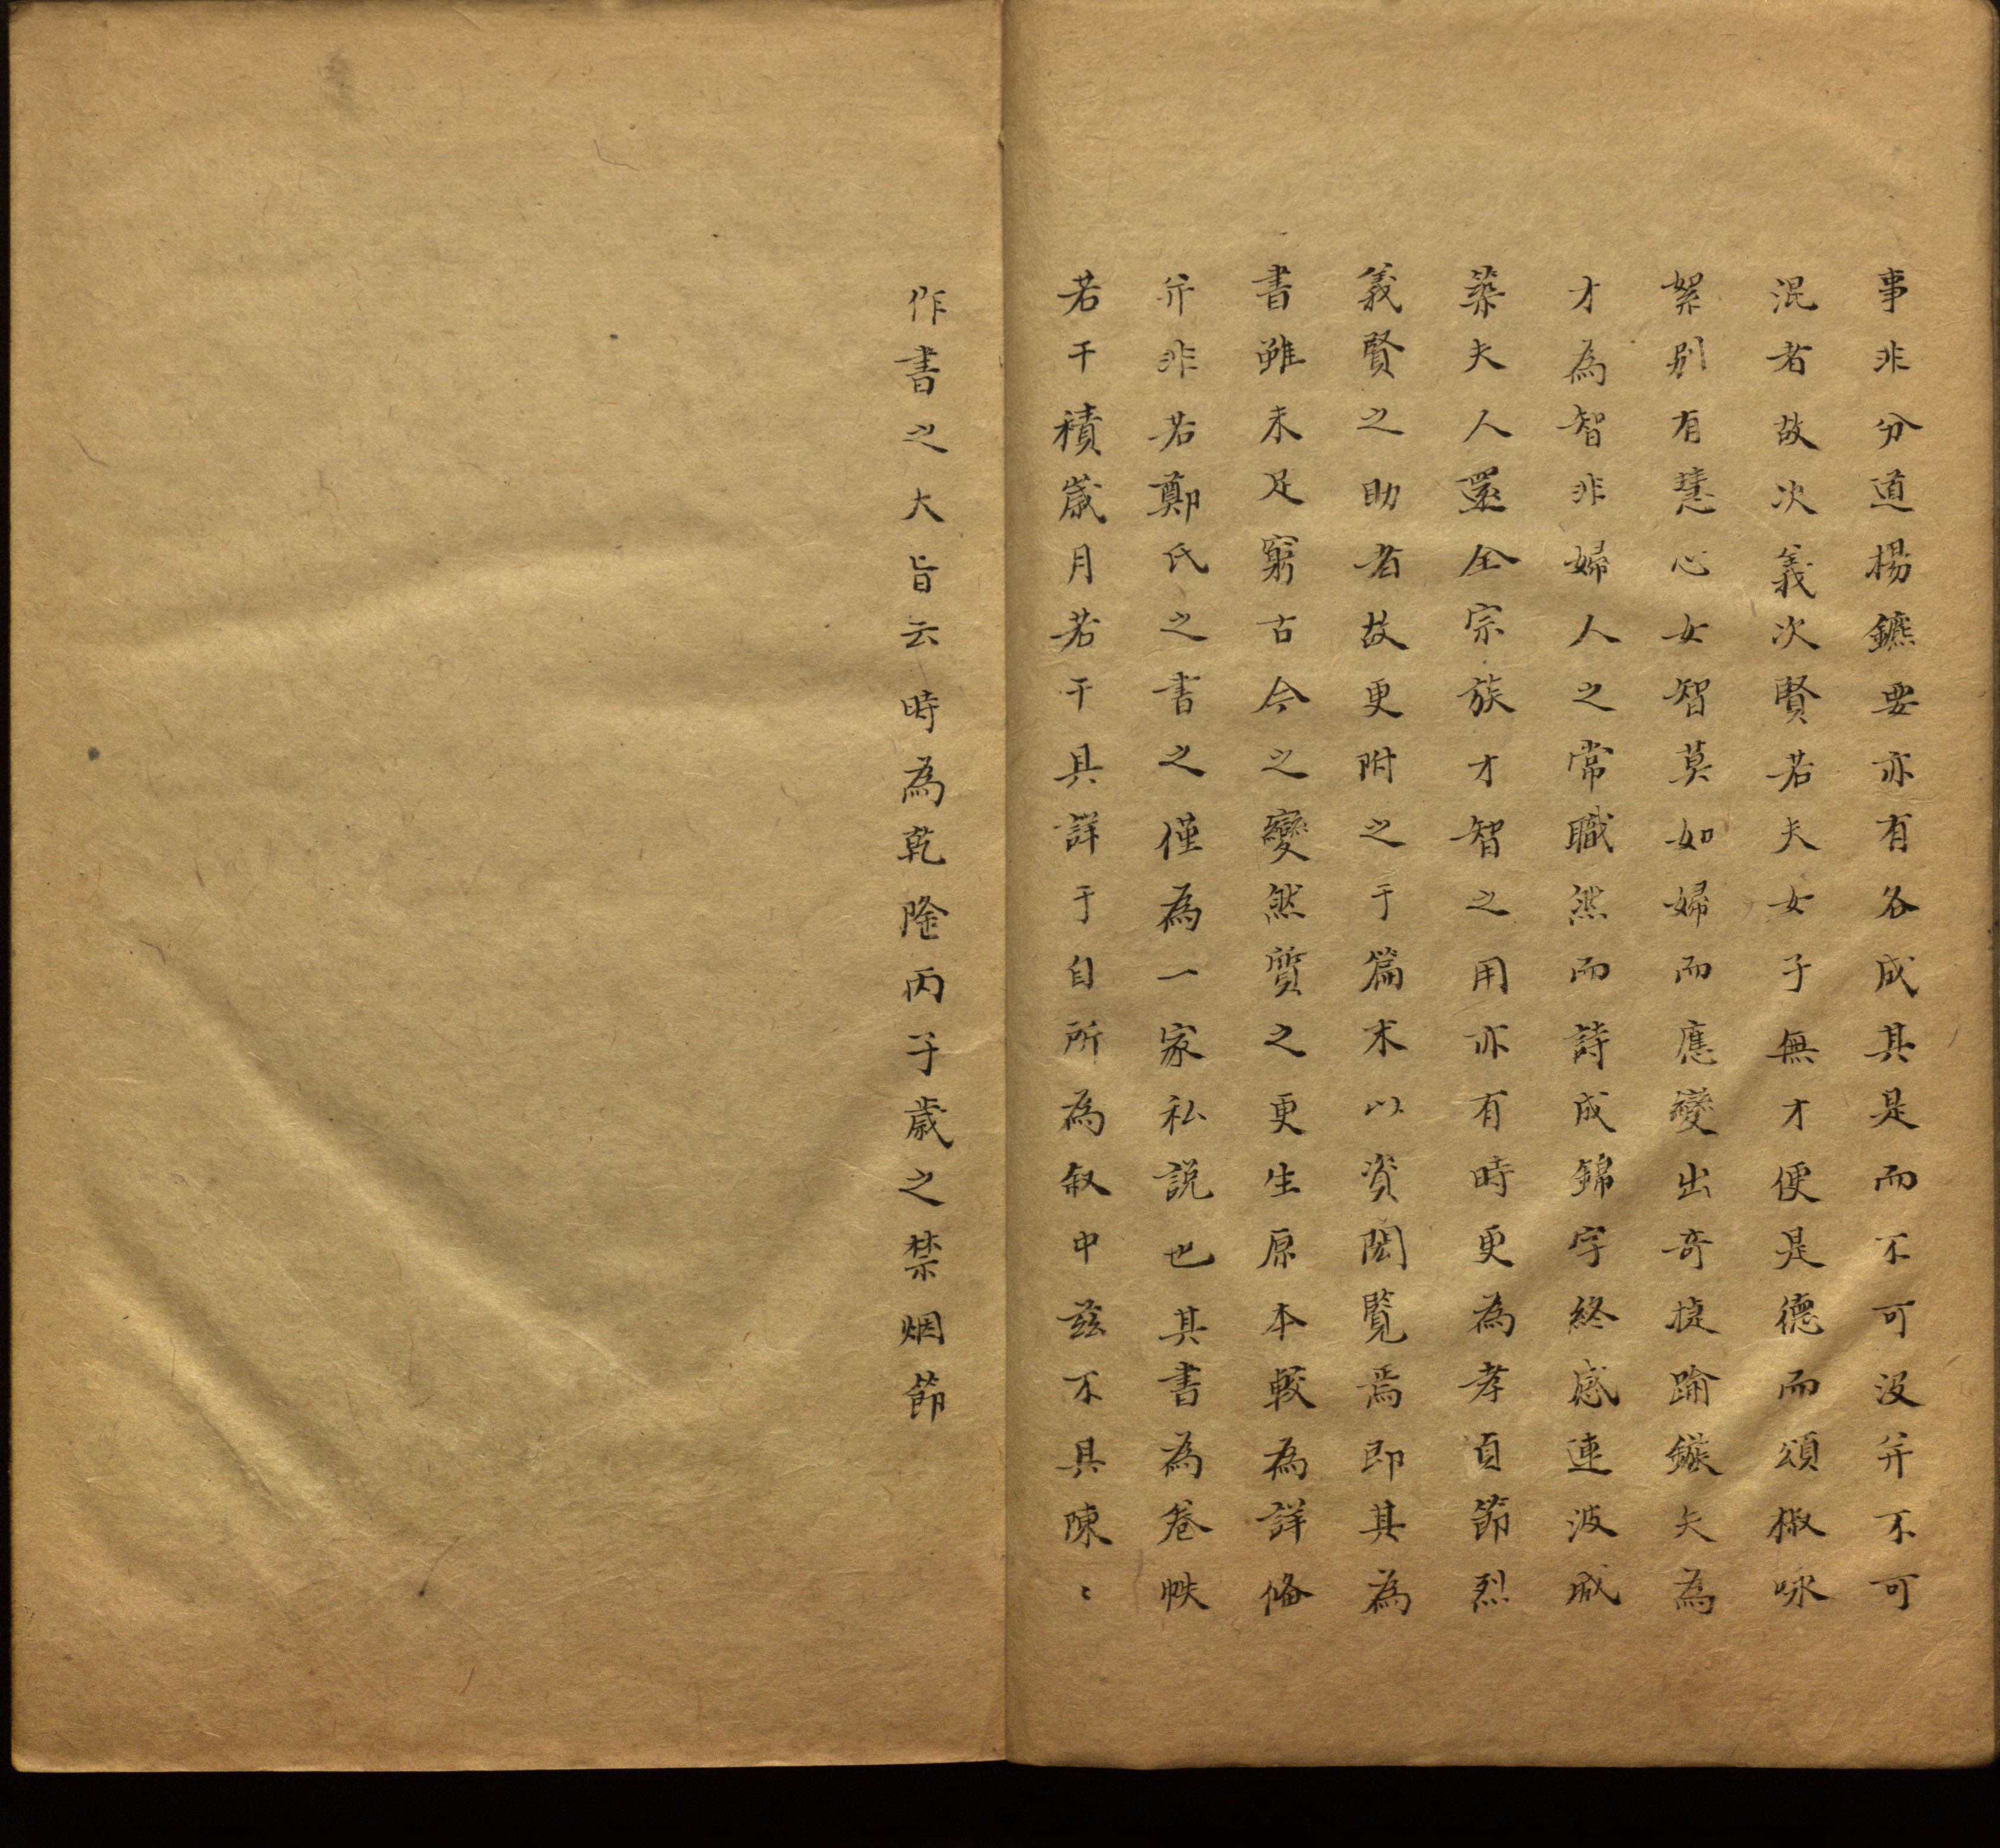 事非分道揚鑣要亦有各成其是而不可沒并不可
混者故次義次賢若夫女子無才便是德而頌椒咏
絮别有慧心女智莫如婦而應變出奇捷踰鏃矢為
才為智非婦人之常職然而詩成錦字終感連波城
築夫人還全宗族才智之用亦有時更為孝貞節烈
義賢之助者故更附之于篇末以資閎覧焉即其為
書雖未足窮古今之變然質之更生原本較為詳俻
并非若鄭氏之書之僅為一家私説也其書為卷帙
若干積歳月若干具詳于自所為叙中兹不具陳〻
作書之大旨云時為乾隆丙子歳之禁烟節